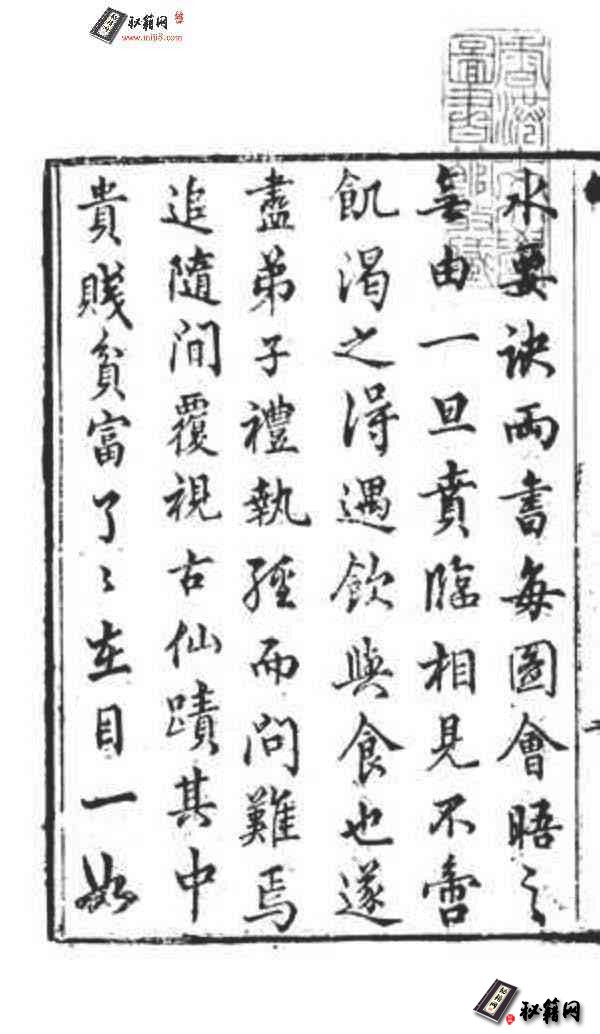 秘籍网
水要訣兩書每圖會晤之
無由一旦賁臨相見不啻
飢渴之得遇飲與食也遂
盡弟子禮執經而問難焉
追隨間覆視古仙蹟其中
貴賤貧富了〻在目一如
秘籍网